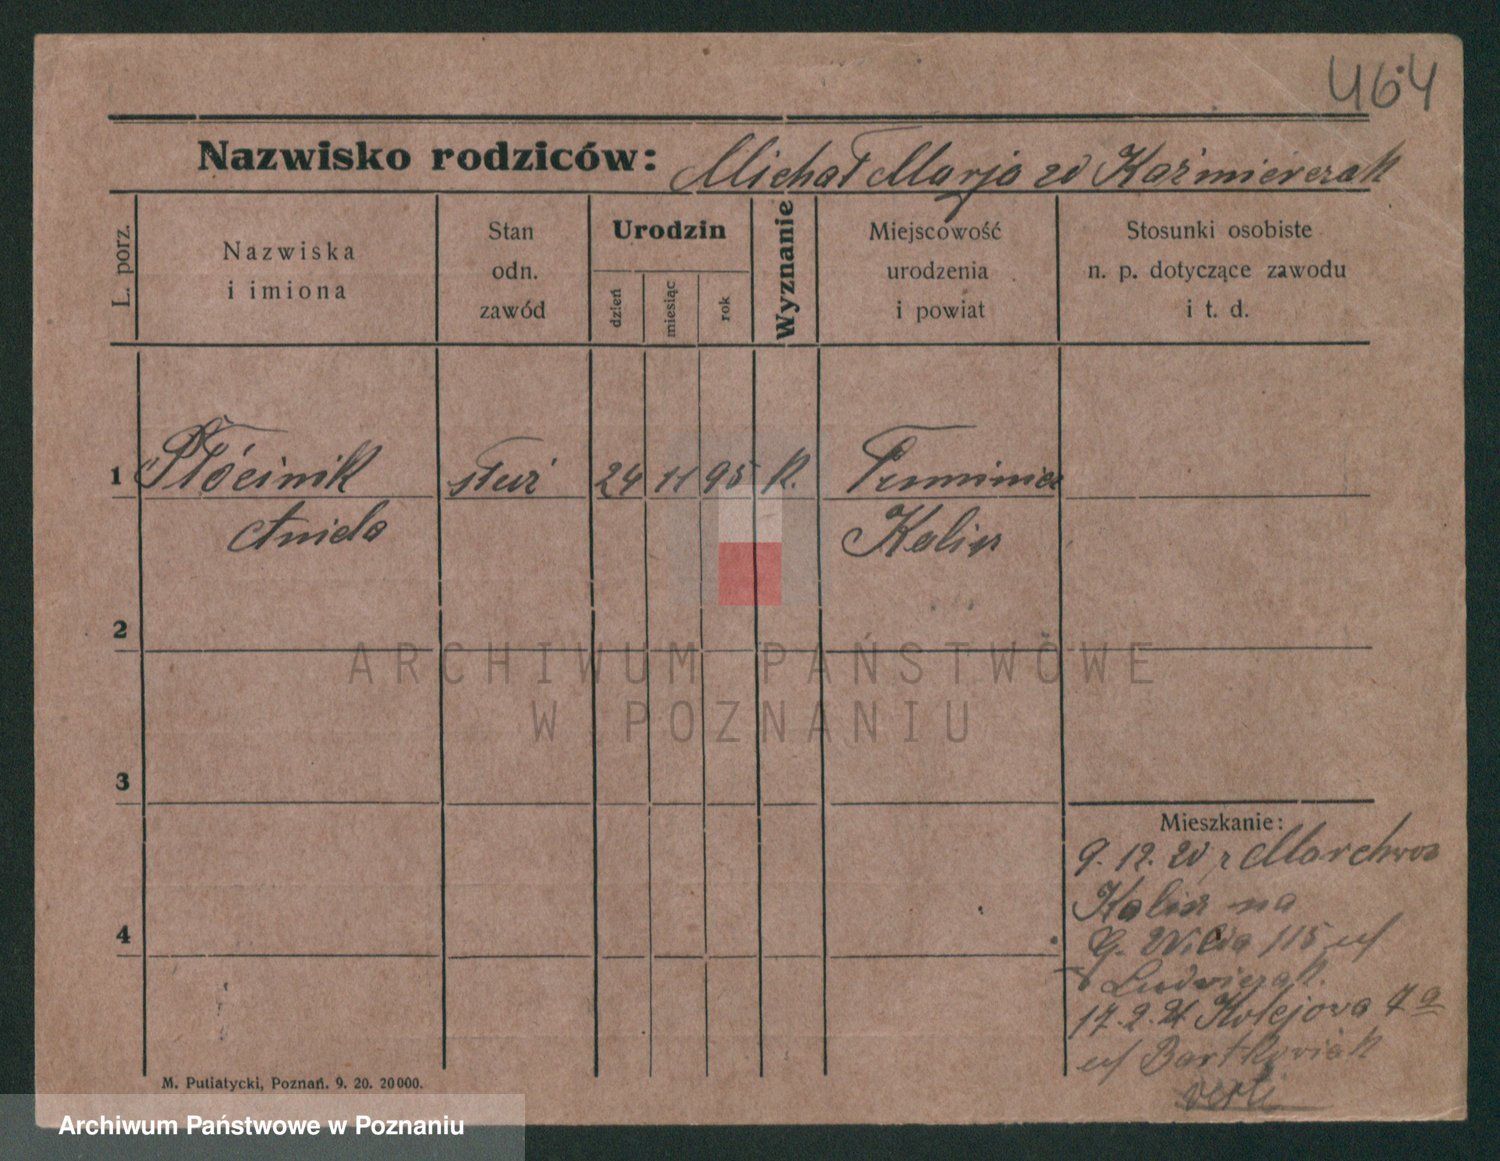 464
Nazwisko rodziców: Michał Marja zd Kaźmierczak
L. porz.
Nazwiska
i imiona
Stan
odn.
zawód
Urodzin
dzień
miesiąc
rok
Wyznanie
Miejscowość
urodzenia
i powiat
Stosunki osobiste
n. p. dotyczące zawodu
i t. d.
1 Płócinik służ 24 11 95 k.
Aniela Kalisz
2
ARCHIWUM PAŃSTWOWE
W POZNANIU
3
Mieszkanie:
9. 12. 20 z
Kalisz na
4
G. Wilda 115 u/
Ludwiczak.
17. 2. 21 Kolejowa 7a
u/ Bartkowiak
verte
M. Putiatycki, Poznań. 9. 20. 20000.
Archiwum Państwowe w Poznaniu